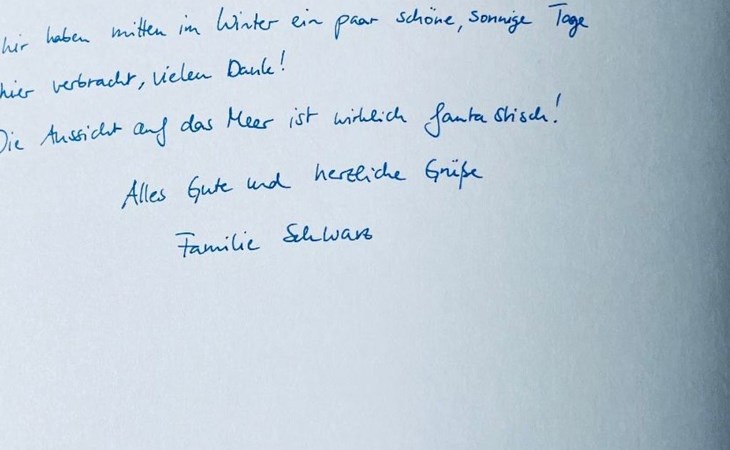 Wir haben mitten im Winter ein paar schöne, sonnige Tage
hier verbracht, vielen Dank!
Die Aussicht auf das Meer ist wirklich fantastisch!
Alles Gute und herzliche Grüße
Familie Schwarz